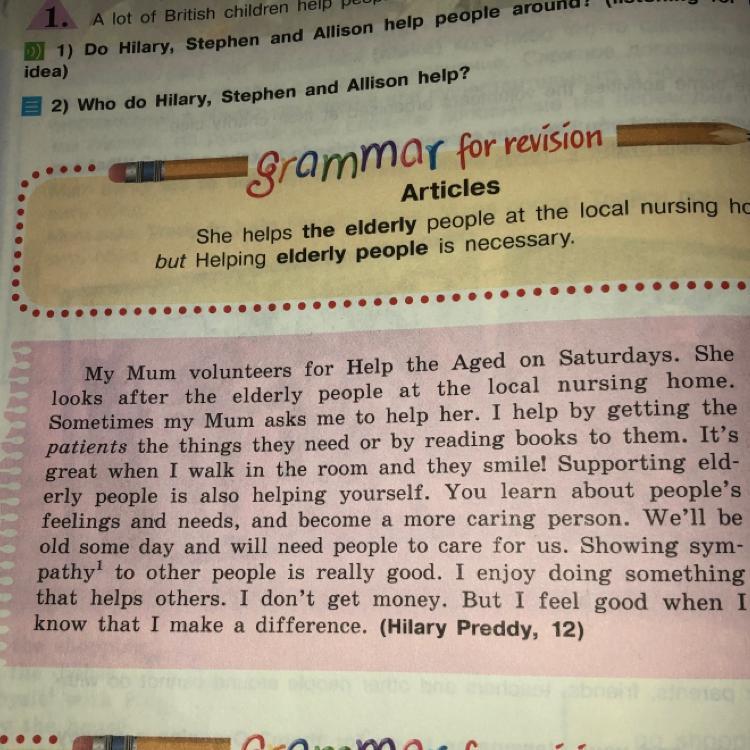 1. A lot of British children help
1) Do Hilary, Stephen and Allison help people around?
idea)
2) Who do Hilary, Stephen and Allison help?
grammar for revision
Articles
She helps the elderly people at the local nursing
but Helping elderly people is necessary.
My Mum volunteers for Help the Aged on Saturdays. She
looks after the elderly people at the local nursing home.
Sometimes my Mum asks me to help her. I help by getting the
patients the things they need or by reading books to them. It's
great when I walk in the room and they smile! Supporting eld-
erly people is also helping yourself. You learn about people's
feelings and needs, and become a more caring person. We'll be
old some day and will need people to care for us. Showing sym-
pathy¹ to other people is really good. I enjoy doing something
that helps others. I don't get money. But I feel good when I
know that I make a difference. (Hilary Preddy, 12)